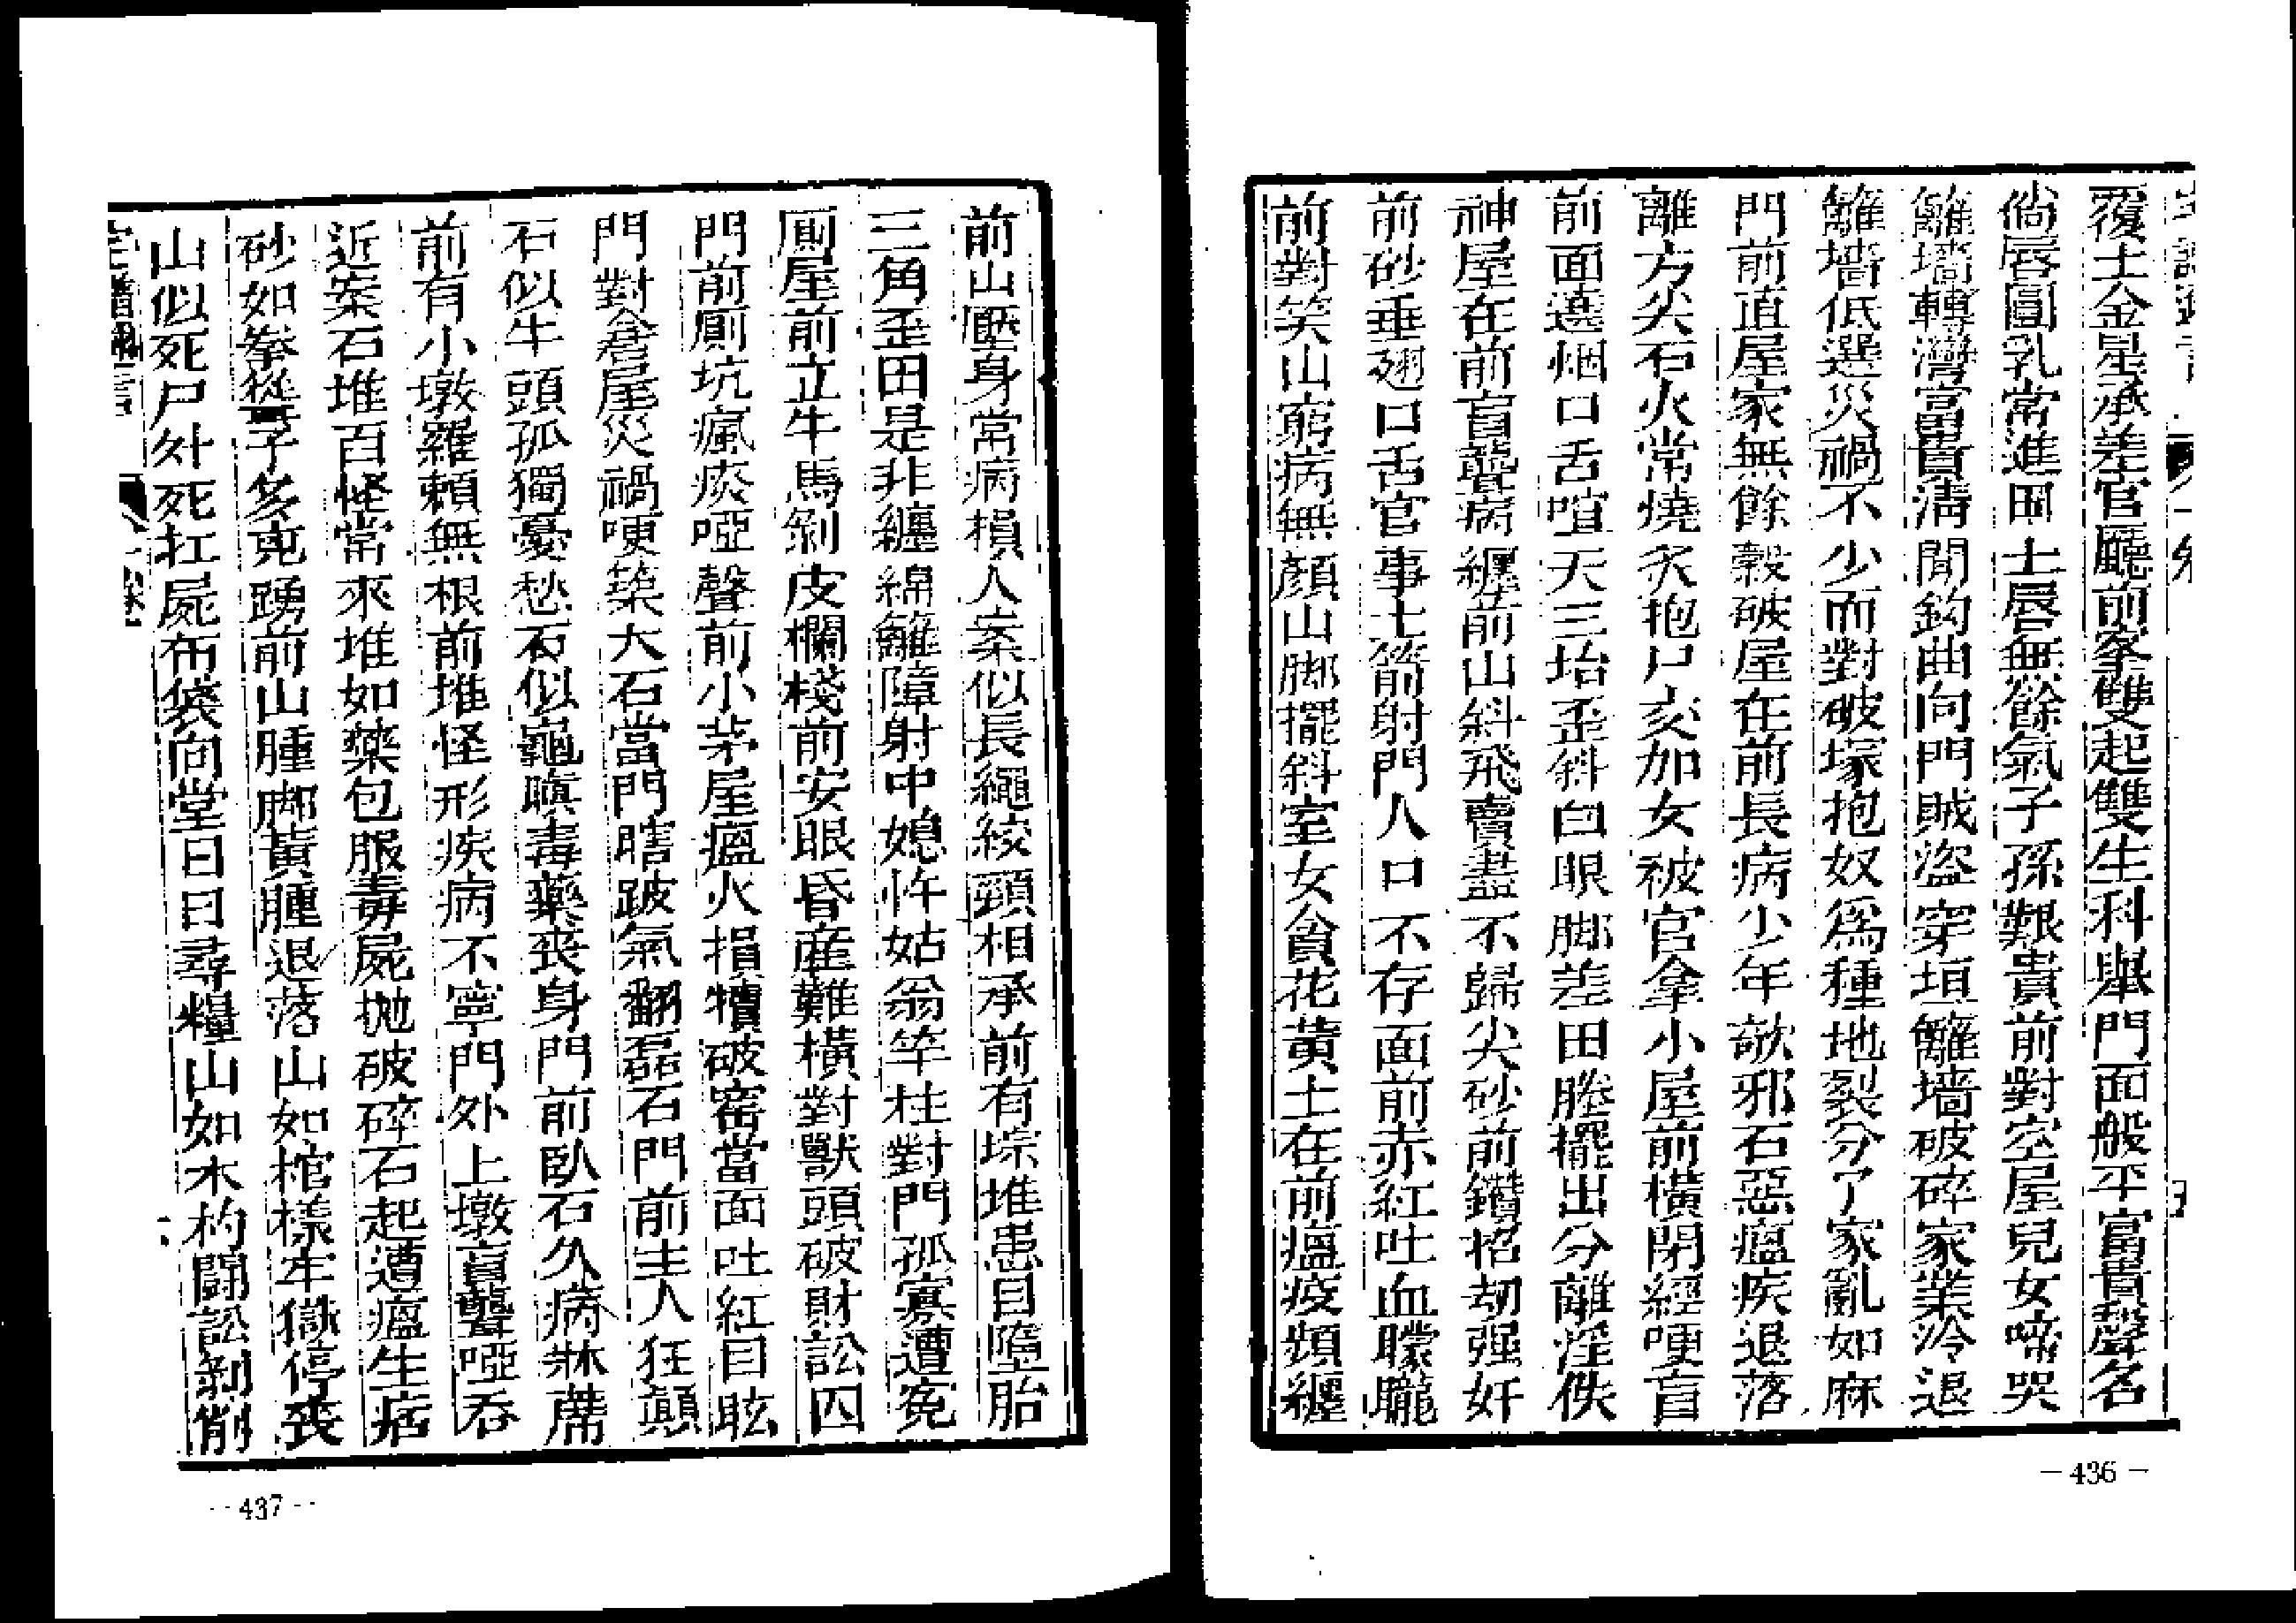 覆土金星承差官廳前峯雙起雙生科舉門面般平富貴聲名
倘唇圓乳常進田土唇無餘氣子孫艱貴前對空屋兒女啼哭
籬墻轉灣富貴淸閒鈎曲向門賊盗穿垣籬墻破碎家業冷退
籬墻低遶災禍不少而對破塚抱奴爲種地裂分了家亂如麻
門前直屋家無餘穀破屋在前長病少年欹邪石惡瘟疾退落
離方尖石火常燒炙抱尸交加女被官拿小屋前橫閉經哽盲
前面遶烟口舌喧天三坮歪斜白眼脚差田塍擺出分離淫佚
神屋在前盲聾病纏前山斜飛賣盡不歸尖砂前鑽招刼强奸
前砂垂翅口舌官事七箭射門人口不存面前赤紅吐血矇矓
前對笑山窮病無顏山脚擺斜室女貪花黃土在前瘟疫頻纏
— 436 —
前山壓身常病損人案似長繩絞頸相承前有埰堆患目墮胎
三角歪田是非纏綿籬障射中媳忤姑翁竿柱對門孤寡遭寃
厠屋前立牛馬剝皮欄棧前安眼昏產難橫對獸頭破財訟囚
門前厠坑瘋痰啞聲前小茅屋瘟火損犢破窰當面吐紅目眩
門對倉屋災禍哽築大石當門瞎跛氣翻磊石門前生人狂顛
石似牛頭孤獨憂愁石似龜瞋毒藥喪身門前臥石久病牀蓆
前有小墩羅賴無根前堆怪形疾病不寧門外上墩盲聾啞吞
近案石堆百怪常來堆如藥包服毒屍抛破碎石起遭瘟生疾
砂如拳從子多克踴前山腫脚黃腫退落山如棺樣牢獄停喪
山似死尸外死扛屍布袋向堂日日尋糧山如木杓鬪訟剝削
-- 437 --